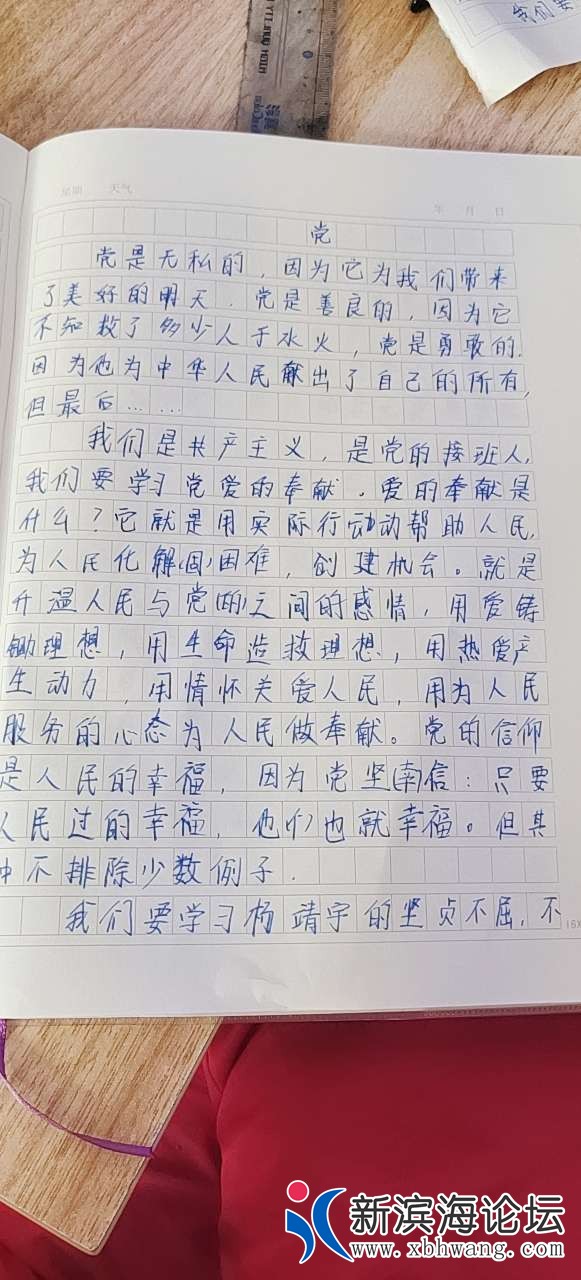 我们要
星期 天气
年 月 日
党
党是无私的，因为它为我们带来
了美好的明天．党是善良的，因为它
不知救了多少人于水火，党是勇敢的．
因为他为中华人民献出了自己的所有，
但最后……
我们是共产主义，是党的接班人，
我们要学习党爱的奉献．爱的奉献是
什么？它就是用实际行动动帮助人民，
为人民化解困难，创建机会。就是
升温人民与党之间的感情，用爱铸
锄理想，用生命造救理想，用热爱产
生动力，用情怀关爱人民，用为人民
服务的心态为人民做奉献。党的信仰
是人民的幸福，因为党坚信：只要
人民过的幸福，他们也就幸福。但其
中不排除少数例子．
我们要学习杨靖宇的坚贞不屈，不
新滨海论坛
www.xbhwang.com